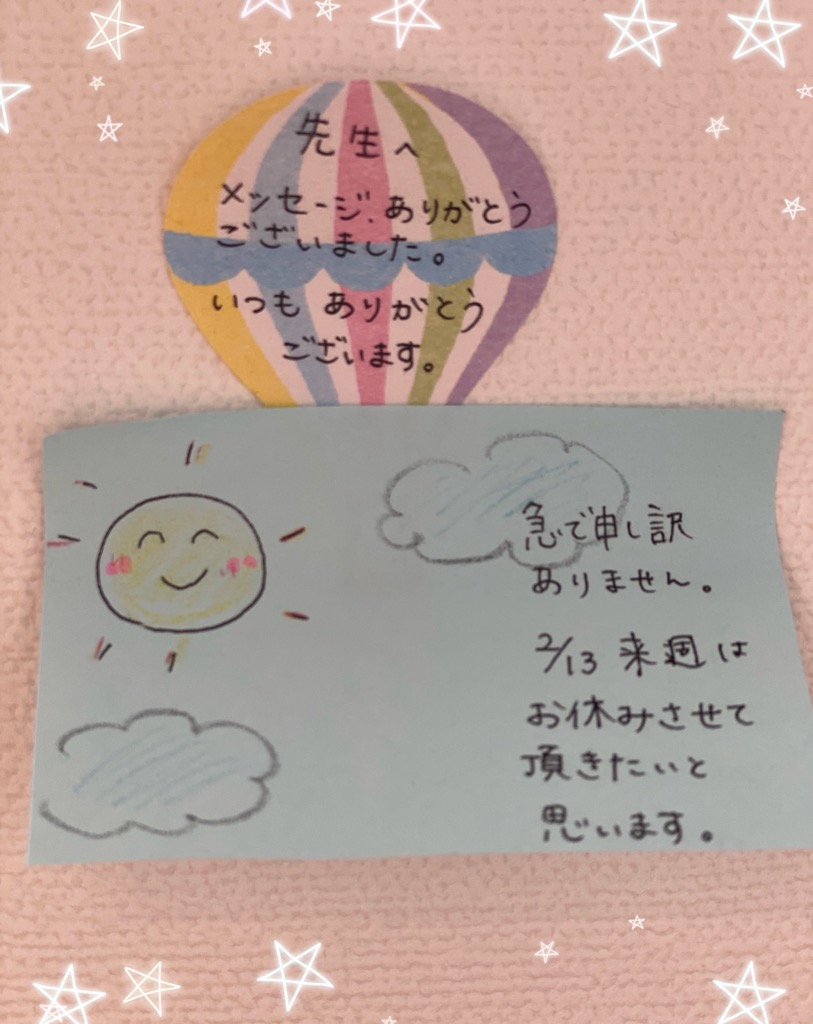 先生へ
メッセージ、ありがとう
ございました。
いつも ありがとう
ございます。
急で申し訳
ありません。
2/13 来週は
お休みさせて
頂きたいと
思います。